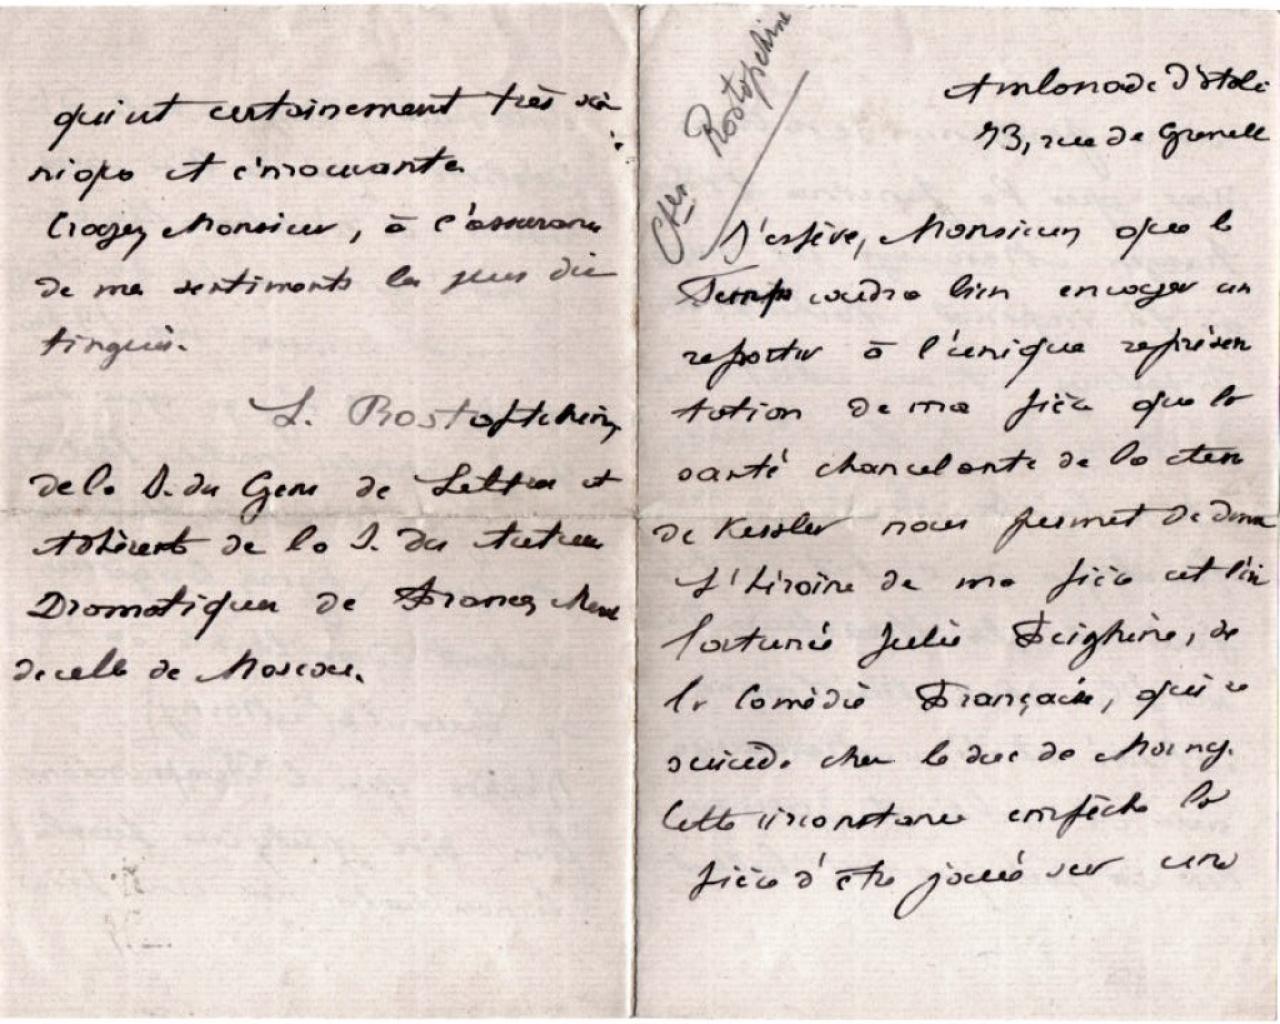 Ambassade d'Itali
73, rue de Grenell
Ctes Rostopchine
J'espère, Monsieur, que le
Temps voudra bien envoyer un
reporter à l'unique représen
tation de ma pièce que la
santé chancelante de la
de Kessler nous permet de donn
L'héroïne de ma pièce est l'in
fortunée Julie Feighine, de
la Comédie Française, qui se
suicida chez le duc de Morny.
Cette circonstance empêche la
pièce d'être jouée sur une
qui est certainement très scé
nique et émouvante.
Croyez, Monsieur, à l'assurance
de mes sentiments les plus dis
tingués.
L. Rostoptchine
de la S. des Gens de Lettres et
Adhérente de la S. des Auteurs
Dramatiques de France,
de celle de Moscou.